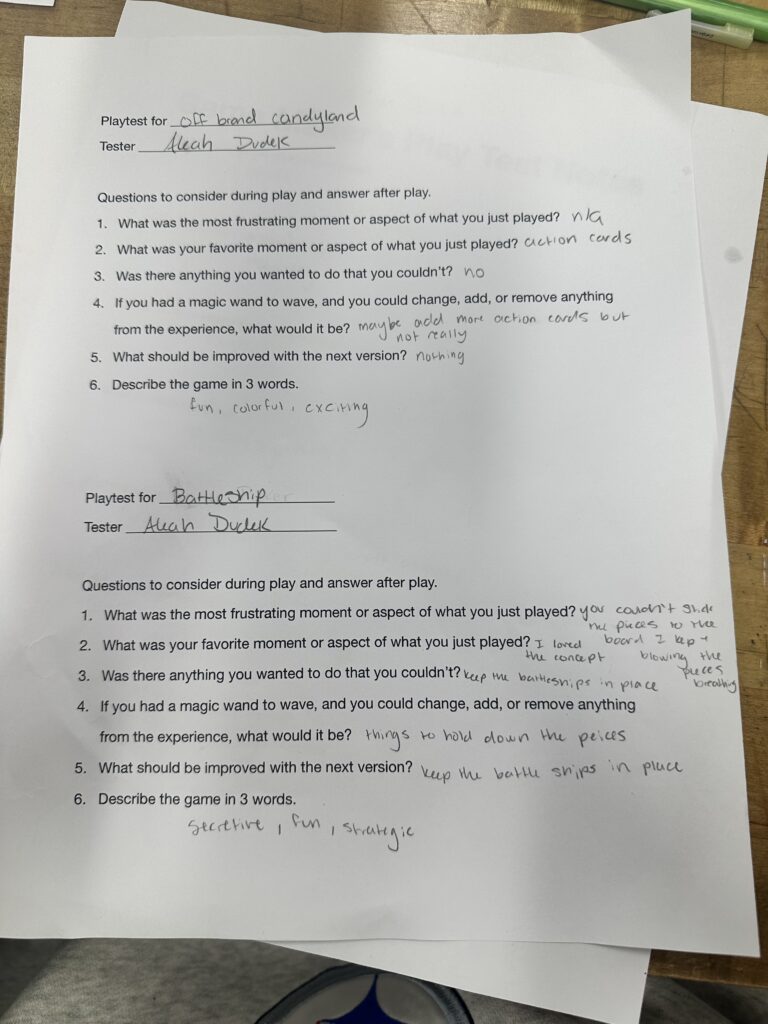 Playtest for off brand candyland
Tester Aleah Dudek
Questions to consider during play and answer after play.
1. What was the most frustrating moment or aspect of what you just played? n/a
2. What was your favorite moment or aspect of what you just played? action cards
3. Was there anything you wanted to do that you couldn't? no
4. If you had a magic wand to wave, and you could change, add, or remove anything
from the experience, what would it be? maybe add more action cards but
not really
5. What should be improved with the next version? nothing
6. Describe the game in 3 words.
fun, colorful, exciting
Playtest for Battleship
Tester Aleah Dudek
Questions to consider during play and answer after play.
1. What was the most frustrating moment or aspect of what you just played? you couldn't
the pieces to the
board I kept
blowing the
pieces
breathing
2. What was your favorite moment or aspect of what you just played? I loved
the concept
3. Was there anything you wanted to do that you couldn't? keep the battleships in place
4. If you had a magic wand to wave, and you could change, add, or remove anything
from the experience, what would it be? things to hold down the peices
5. What should be improved with the next version? keep the battle ships in place
6. Describe the game in 3 words.
secretive, fun, strategic